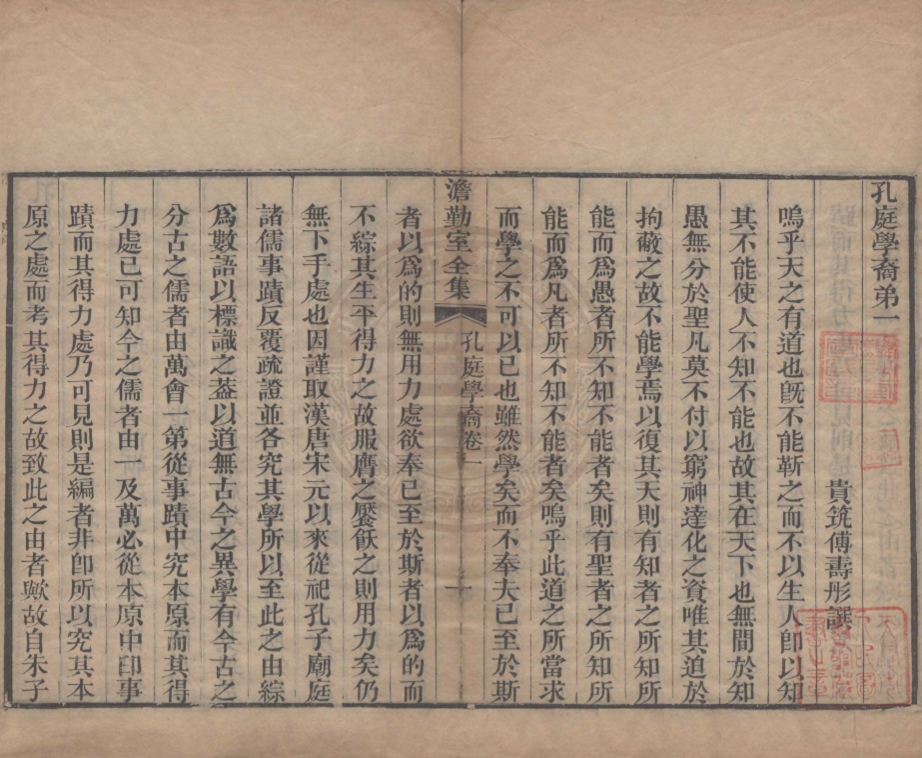 孔庭學裔弟一
貴筑傅壽彤譔
嗚乎天之有道也旣不能靳之而不以生人卽以知
其不能使人不知不能也故其在天下也無間於知
愚無分於聖凡莫不付以窮神達化之資唯其迫於
拘蔽之故不能學焉以復其天則有知者之所知所
能而爲愚者所不知不能者矣則有聖者之所知所
能而爲凡者所不知不能者矣嗚乎此道之所當求
而學之不可以已也雖然學矣而不奉夫已至於斯
澹勤室全集
孔庭學裔卷一
一
者以爲的則無用力處欲奉已至於斯者以爲的而
不綜其生平得力之故服膺之饜飫之則用力矣仍
無下手處也因謹取漢唐宋元以來從祀孔子廟庭
諸儒事蹟反覆疏證並各究其學所以至此之由綜
爲數語以標識之葢以道無古今之異學有今古之
分古之儒者由萬會一第從事蹟中究本原而其得
力處已可知今之儒者由一及萬必從本原中印事
蹟而其得力處乃可見則是編者非卽所以究其本
原之處而考其得力之故致此之由者歟故自朱子